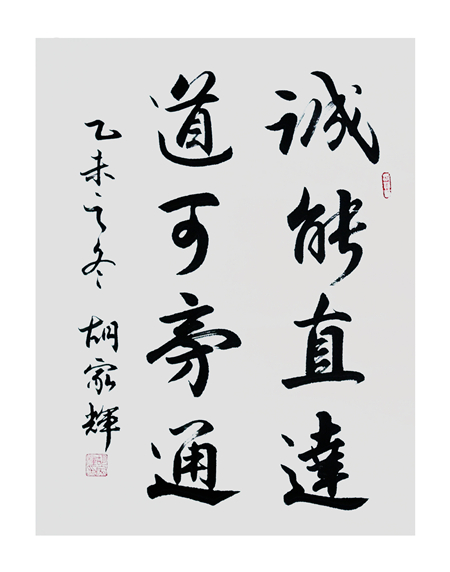 誠能直達
道可旁通
乙未之冬 胡家輝